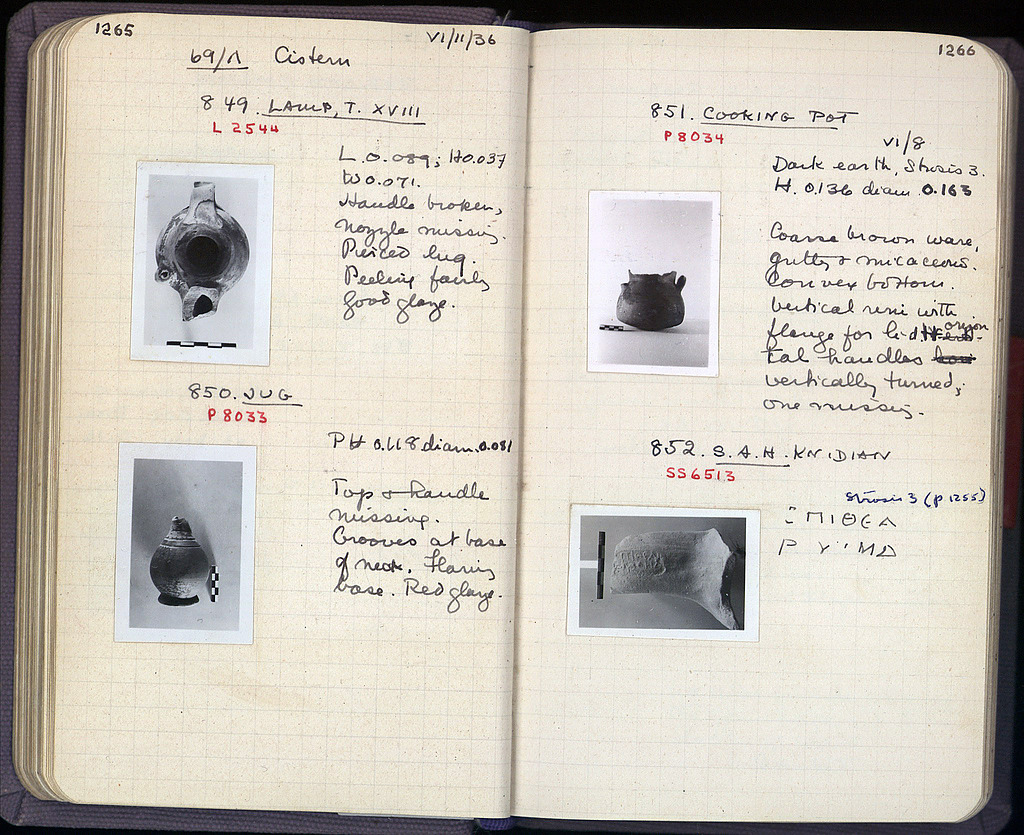 1265
VI/11/36
69/Λ Cistern
849. LAMP, T. XVIII
L 2544
L. 0.089; H 0.037
W 0.071.
Handle broken,
nozzle missing.
Pierced lug.
Peeling fairly
good glaze.
850. JUG
P 8033
PH 0.118 diam. 0.081
Top & handle
missing.
Grooves at base
of neck. Flaring
base. Red glaze.
1266
851. COOKING POT
P 8034
VI/8
Dark earth, Strosis 3.
H. 0.136 diam 0.163
Coarse brown ware,
gritty & micaceous.
Convex bottom.
Vertical rim with
flange for lid.
tal handles
vertically turned;
one missing.
852. S.A.H. KNIDIAN
SS6513
Strosis 3 (p 1255)
ΕΠΙΘΕΑ